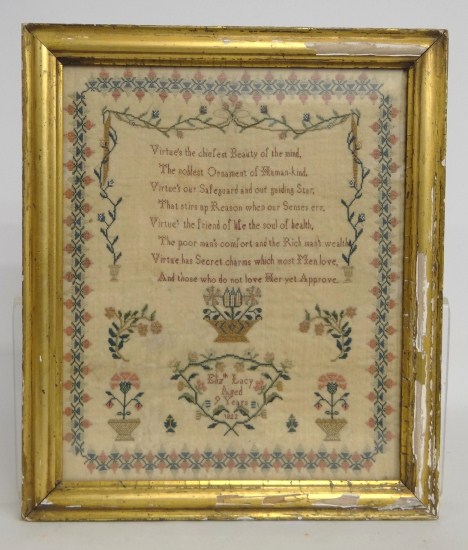 Virtue's the chiefest Beauty of the mind,
The noblest Ornament of Human-kind,
Virtue's our Safeguard and our guiding Star,
That stirs up Reason when our Senses err,
Virtue's the friend of life the soul of health,
The poor man's comfort and the Rich man's wealth
Virtue has Secret charms which most Men love,
And those who do not love Her yet Approve.
Lucy
Aged
9 Years